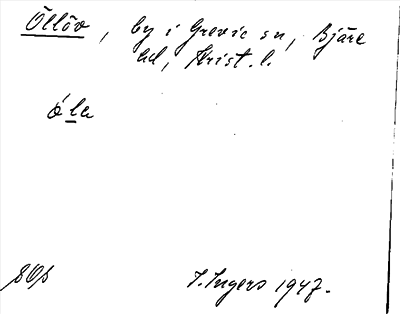 Öllöv, by i Grevie sn, Bjäre
hd, Krist. l.
ó la
SOp I. Ingers 1947.